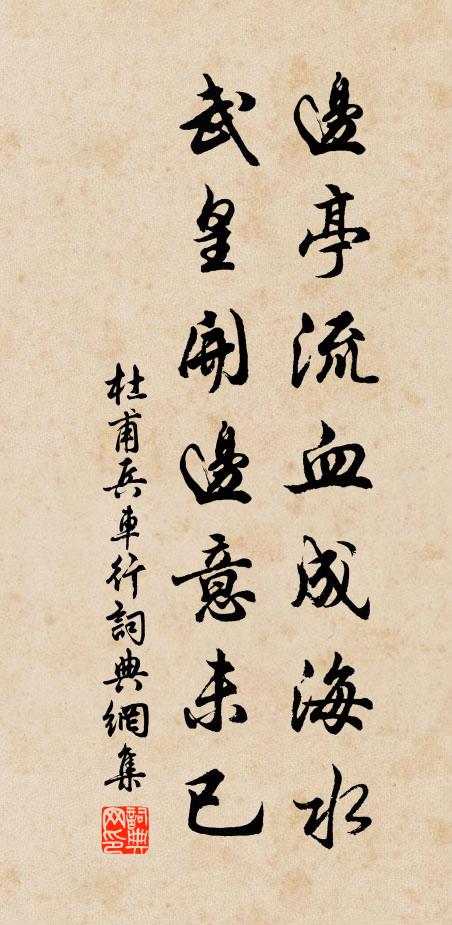 邊亭流血成海水
武皇開邊意未已
杜甫兵車行詞典網集
詞典网印